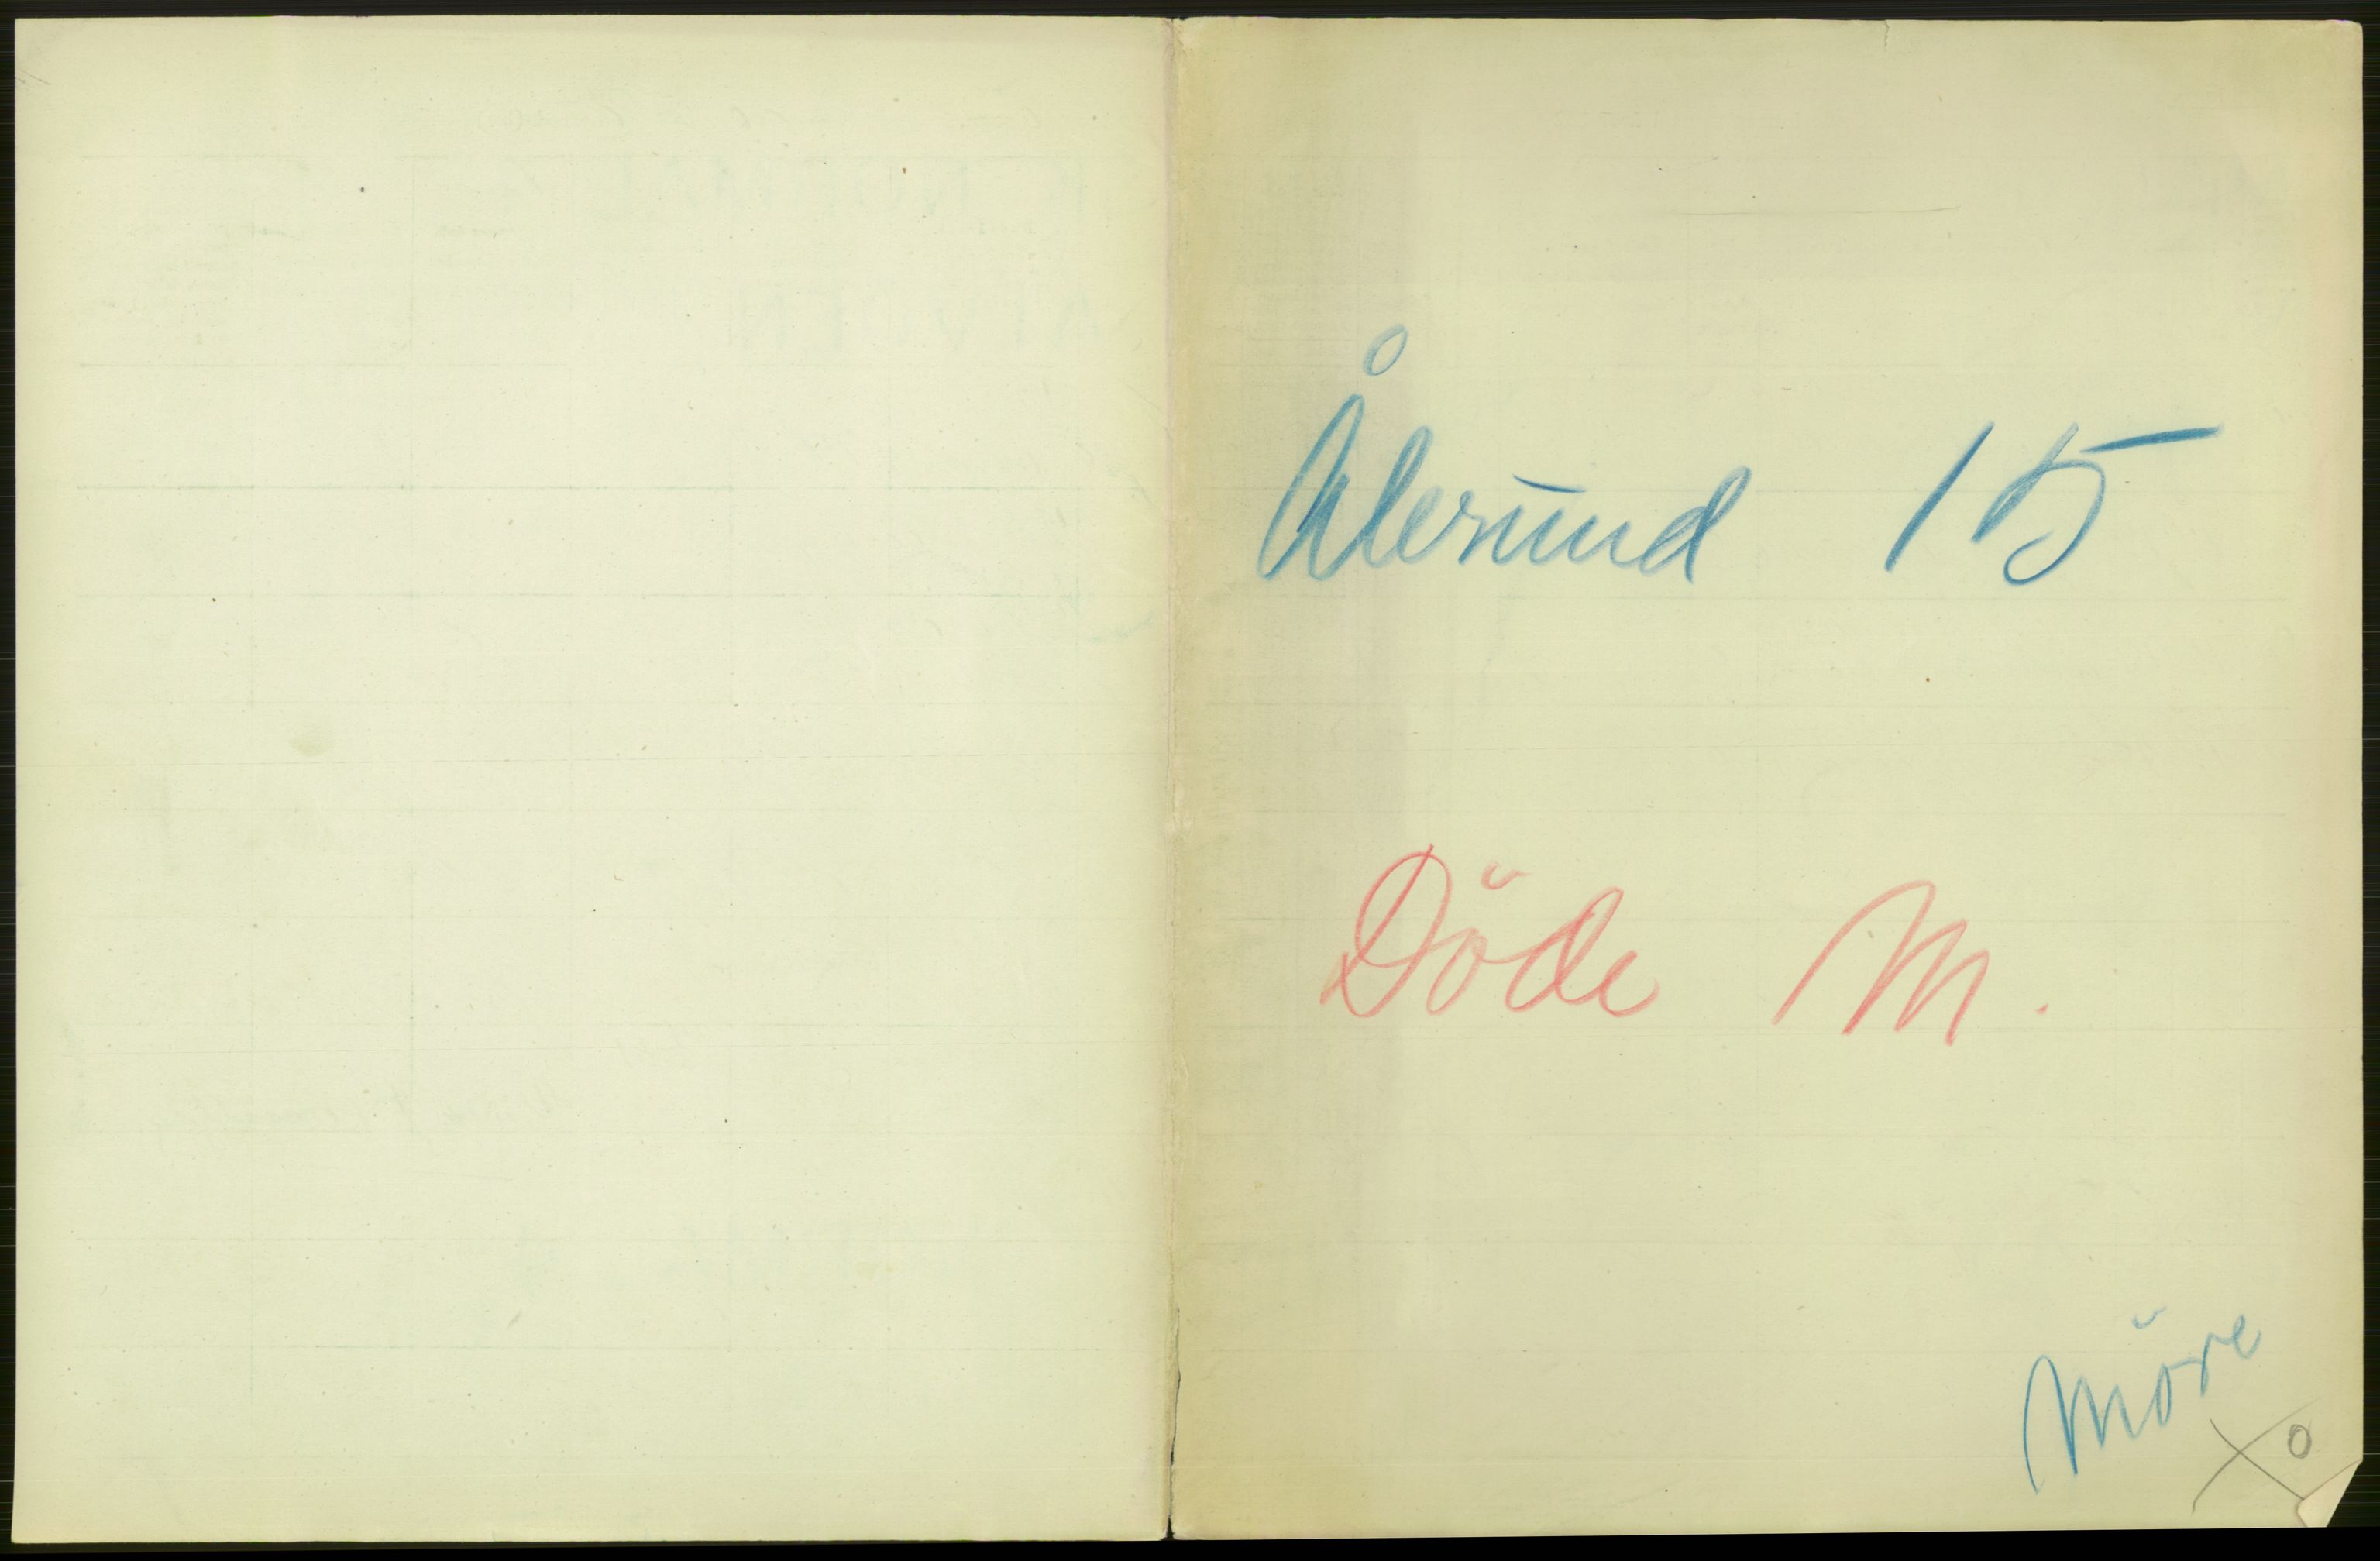 Ålesund 15
Döde M.
Möre
X 0